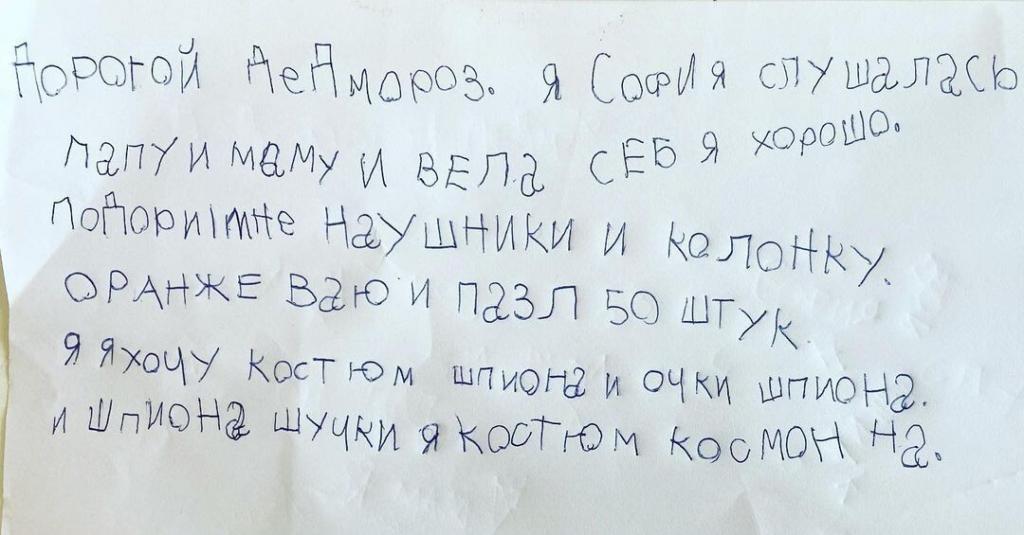 Дорогой ДеДмороз. я София слушалась
папу и маму и вела себя хорошо.
подориімне наушники и калонку.
оранже ваю и пазл 50 штук.
я яхочу костюм шпиона и очки шпиона.
и шпиона шучки я костюм космон на.